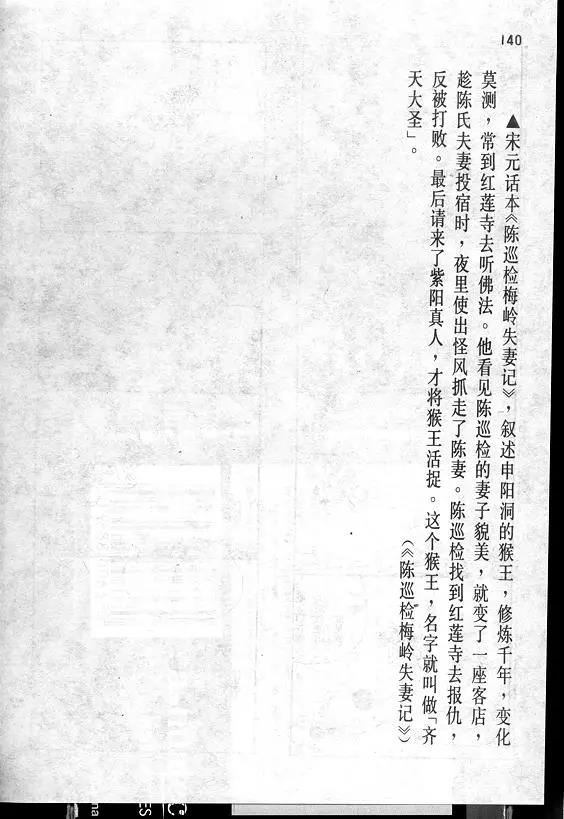 140
▲宋元话本《陈巡检梅岭失妻记》，叙述申阳洞的猴王，修炼千年，变化
莫测，常到红莲寺去听佛法。他看见陈巡检的妻子貌美，就变了一座客店，
趁陈氏夫妻投宿时，夜里使出怪风抓走了陈妻。陈巡检找到红莲寺去报仇，
反被打败。最后请来了紫阳真人，才将猴王活捉。这个猴王，名字就叫做「齐
天大圣」。
（《陈巡检梅岭失妻记》）
ES
C
na